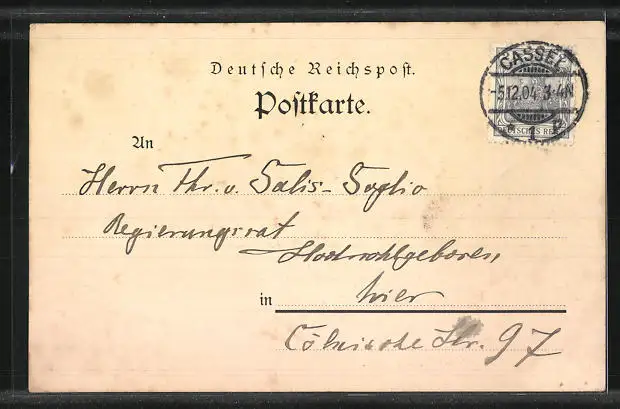 Deutsche Reichspost.
Postkarte.
CASSEL
-5.12.04. 3-4N
1
DEUTSCHES REICH
An
Herrn Fhr. v. Salis-Soglio
Regierungsrat
Hochwohlgeboren
in hier
Cölnische Str. 97